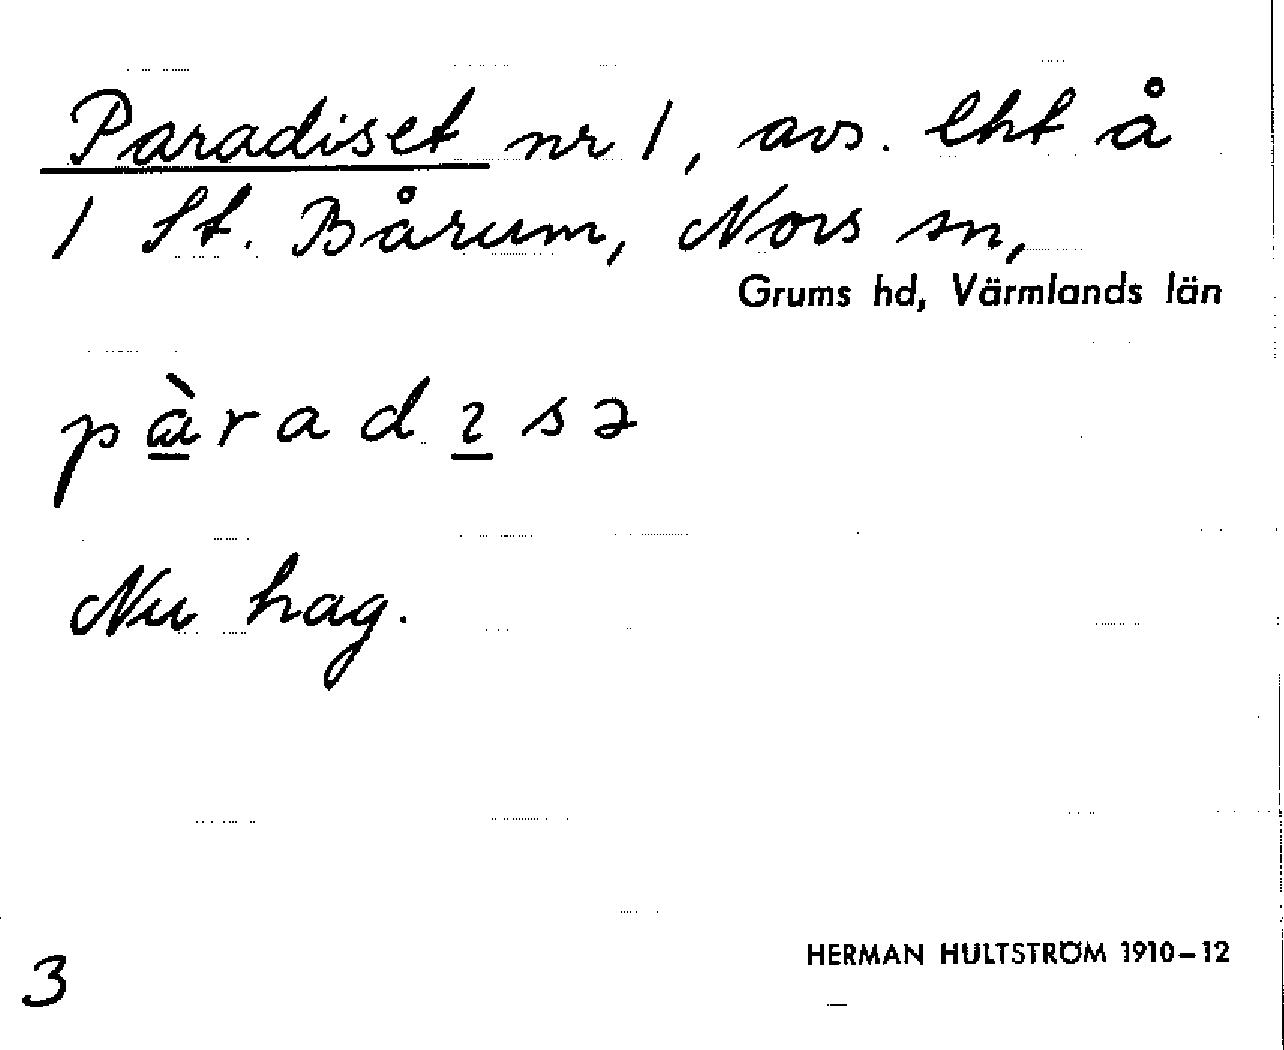 Paradiset nr 1, avs. lht å
1 St. Bårum, Nors sn,
Grums hd, Värmlands län
pàradısə
Nu hag.
3
HERMAN HULTSTRÖM 1910–12